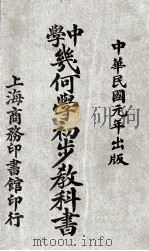 中華民國元年出版
中學
幾何學初步教科書
上海商務印書館印行
mtoou.info